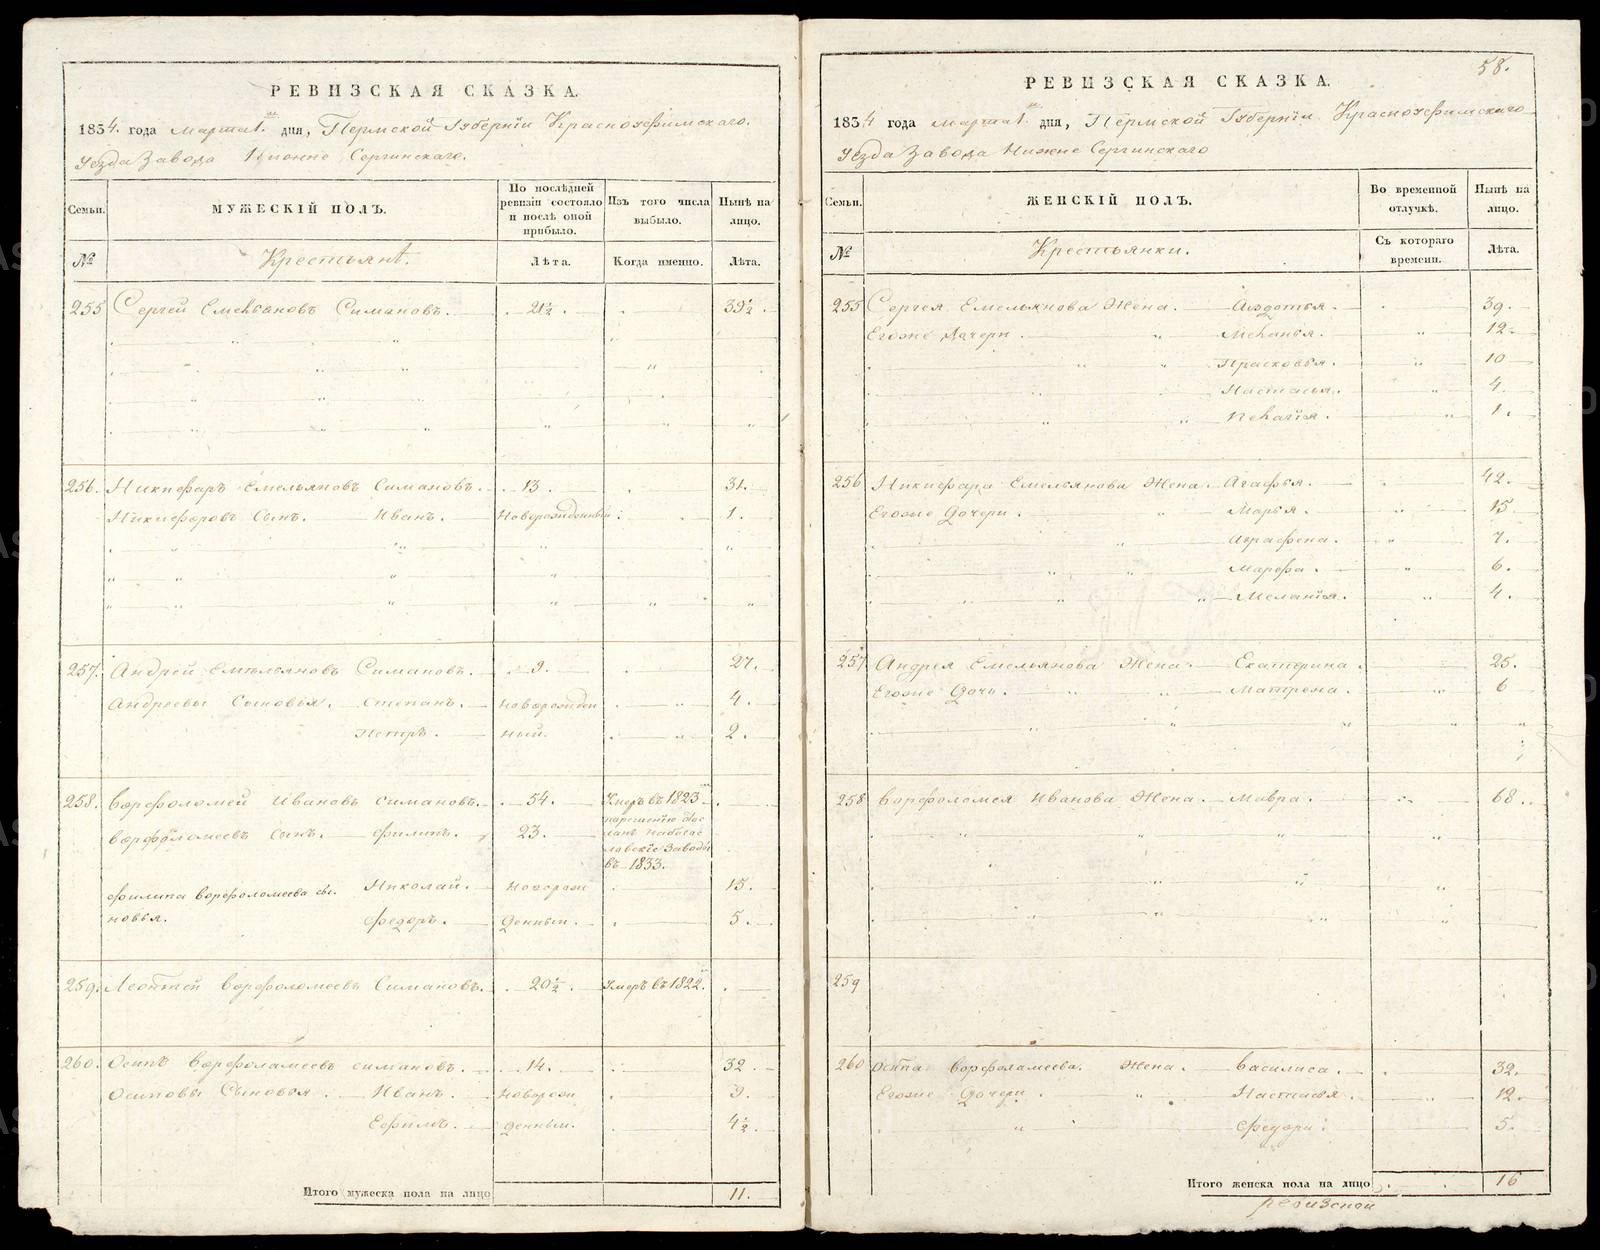 РЕВИЗСКАЯ СКАЗКА.
1834. года Марта 1. дня, Пермской Губернiи Красноуфимскаго.
Уѣзда Завода Нижне Сергинскаго.
Семьи.
МУЖЕСКIЙ ПОЛЪ.
По послѣдней ревизiи состояло и послѣ оной прибыло.
Изъ того числа выбыло.
Нынѣ на лицо.
№
Крестьянѣ.
Лѣта.
Когда именно.
Лѣта.
255 Сергей Емельяновъ Симановъ. 21½. 39½.
256. Никифаръ Емельяновъ Симановъ. 13. 31.
Никифоровъ Сынъ. Иванъ. Новорожденный 1.
257. Андрей Емельяновъ Симановъ. 9. 27.
Андреевы Сыновья. Степанъ. Новорожден 4.
Петръ. ный. 2.
258. Ворфоломей Ивановъ Симановъ. 54. Умеръ въ 1823
Ворфоломеевъ Сынъ. Филипъ. 23.
въ 1833.
Филипа Ворфоломеева сы- Николай. Новорож 15.
новья. Федоръ. денныи. 5.
259. Леонтей Ворфоломеевъ Симановъ. 20½. Умеръ въ 1822.
260. Осипъ Ворфоламеевъ Симановъ. 14. 32.
Осиповы Сыновья. Иванъ. Новорож 9.
Ефимъ. денныи. 4½.
Итого мужеска пола на лицо 11.
58.
РЕВИЗСКАЯ СКАЗКА.
1834 года Марта 1. дня, Пермской Губернiи Красноуфимскаго
Уѣзда Завода Нижне Сергинскаго
Семьи.
ЖЕНСКIЙ ПОЛЪ.
Во временной отлучкѣ.
Нынѣ на лицо.
№
Крестьянки.
Съ котораго времени.
Лѣта.
255 Сергея Емельянова Жена. Авдотья. 39.
Егоже Дочери. Меланья. 12.
Прасковья. 10
Настасья. 4.
Пелагiя. 1.
256 Никифара Емельянова Жена. Агафья. 42.
Егоже Дочери. Марья. 15.
Аграфена. 7.
Марфа. 6.
Меланiя. 4.
257 Андрея Емельянова Жена. Екатерина. 25.
Егоже Дочь. Матрена. 6
258 Ворфоломея Иванова Жена. Мавра. 68.
259
260 Осипа Ворфоламеева. Жена. Василиса. 32.
Егоже Дочери. Настасья. 12.
Федора. 5.
Итого женска пола на лицо 16
ревизской